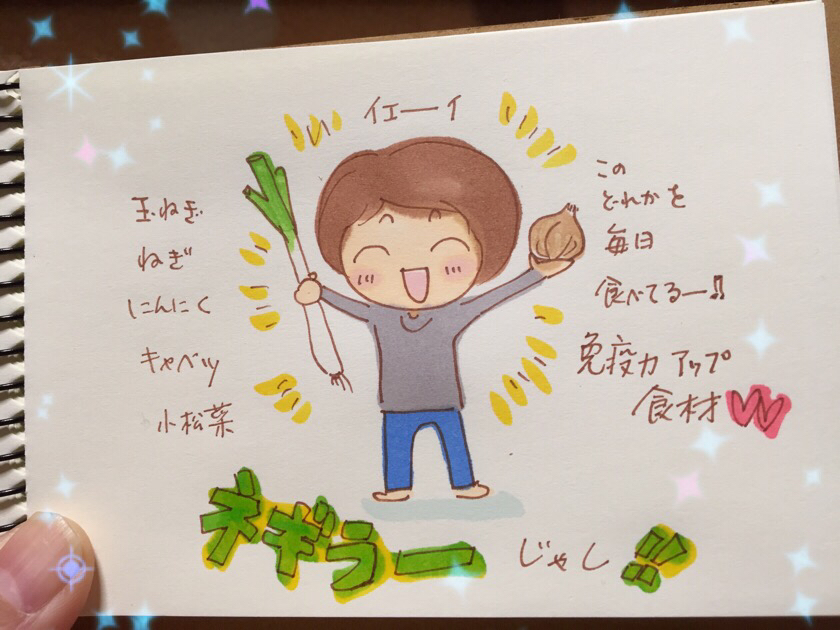 イエーイ
玉ねぎ
ねぎ
にんにく
キャベツ
小松菜
この
どれかを
毎日
食べてるー!!
免疫力アップ
食材
ネギラー
じゃし!!